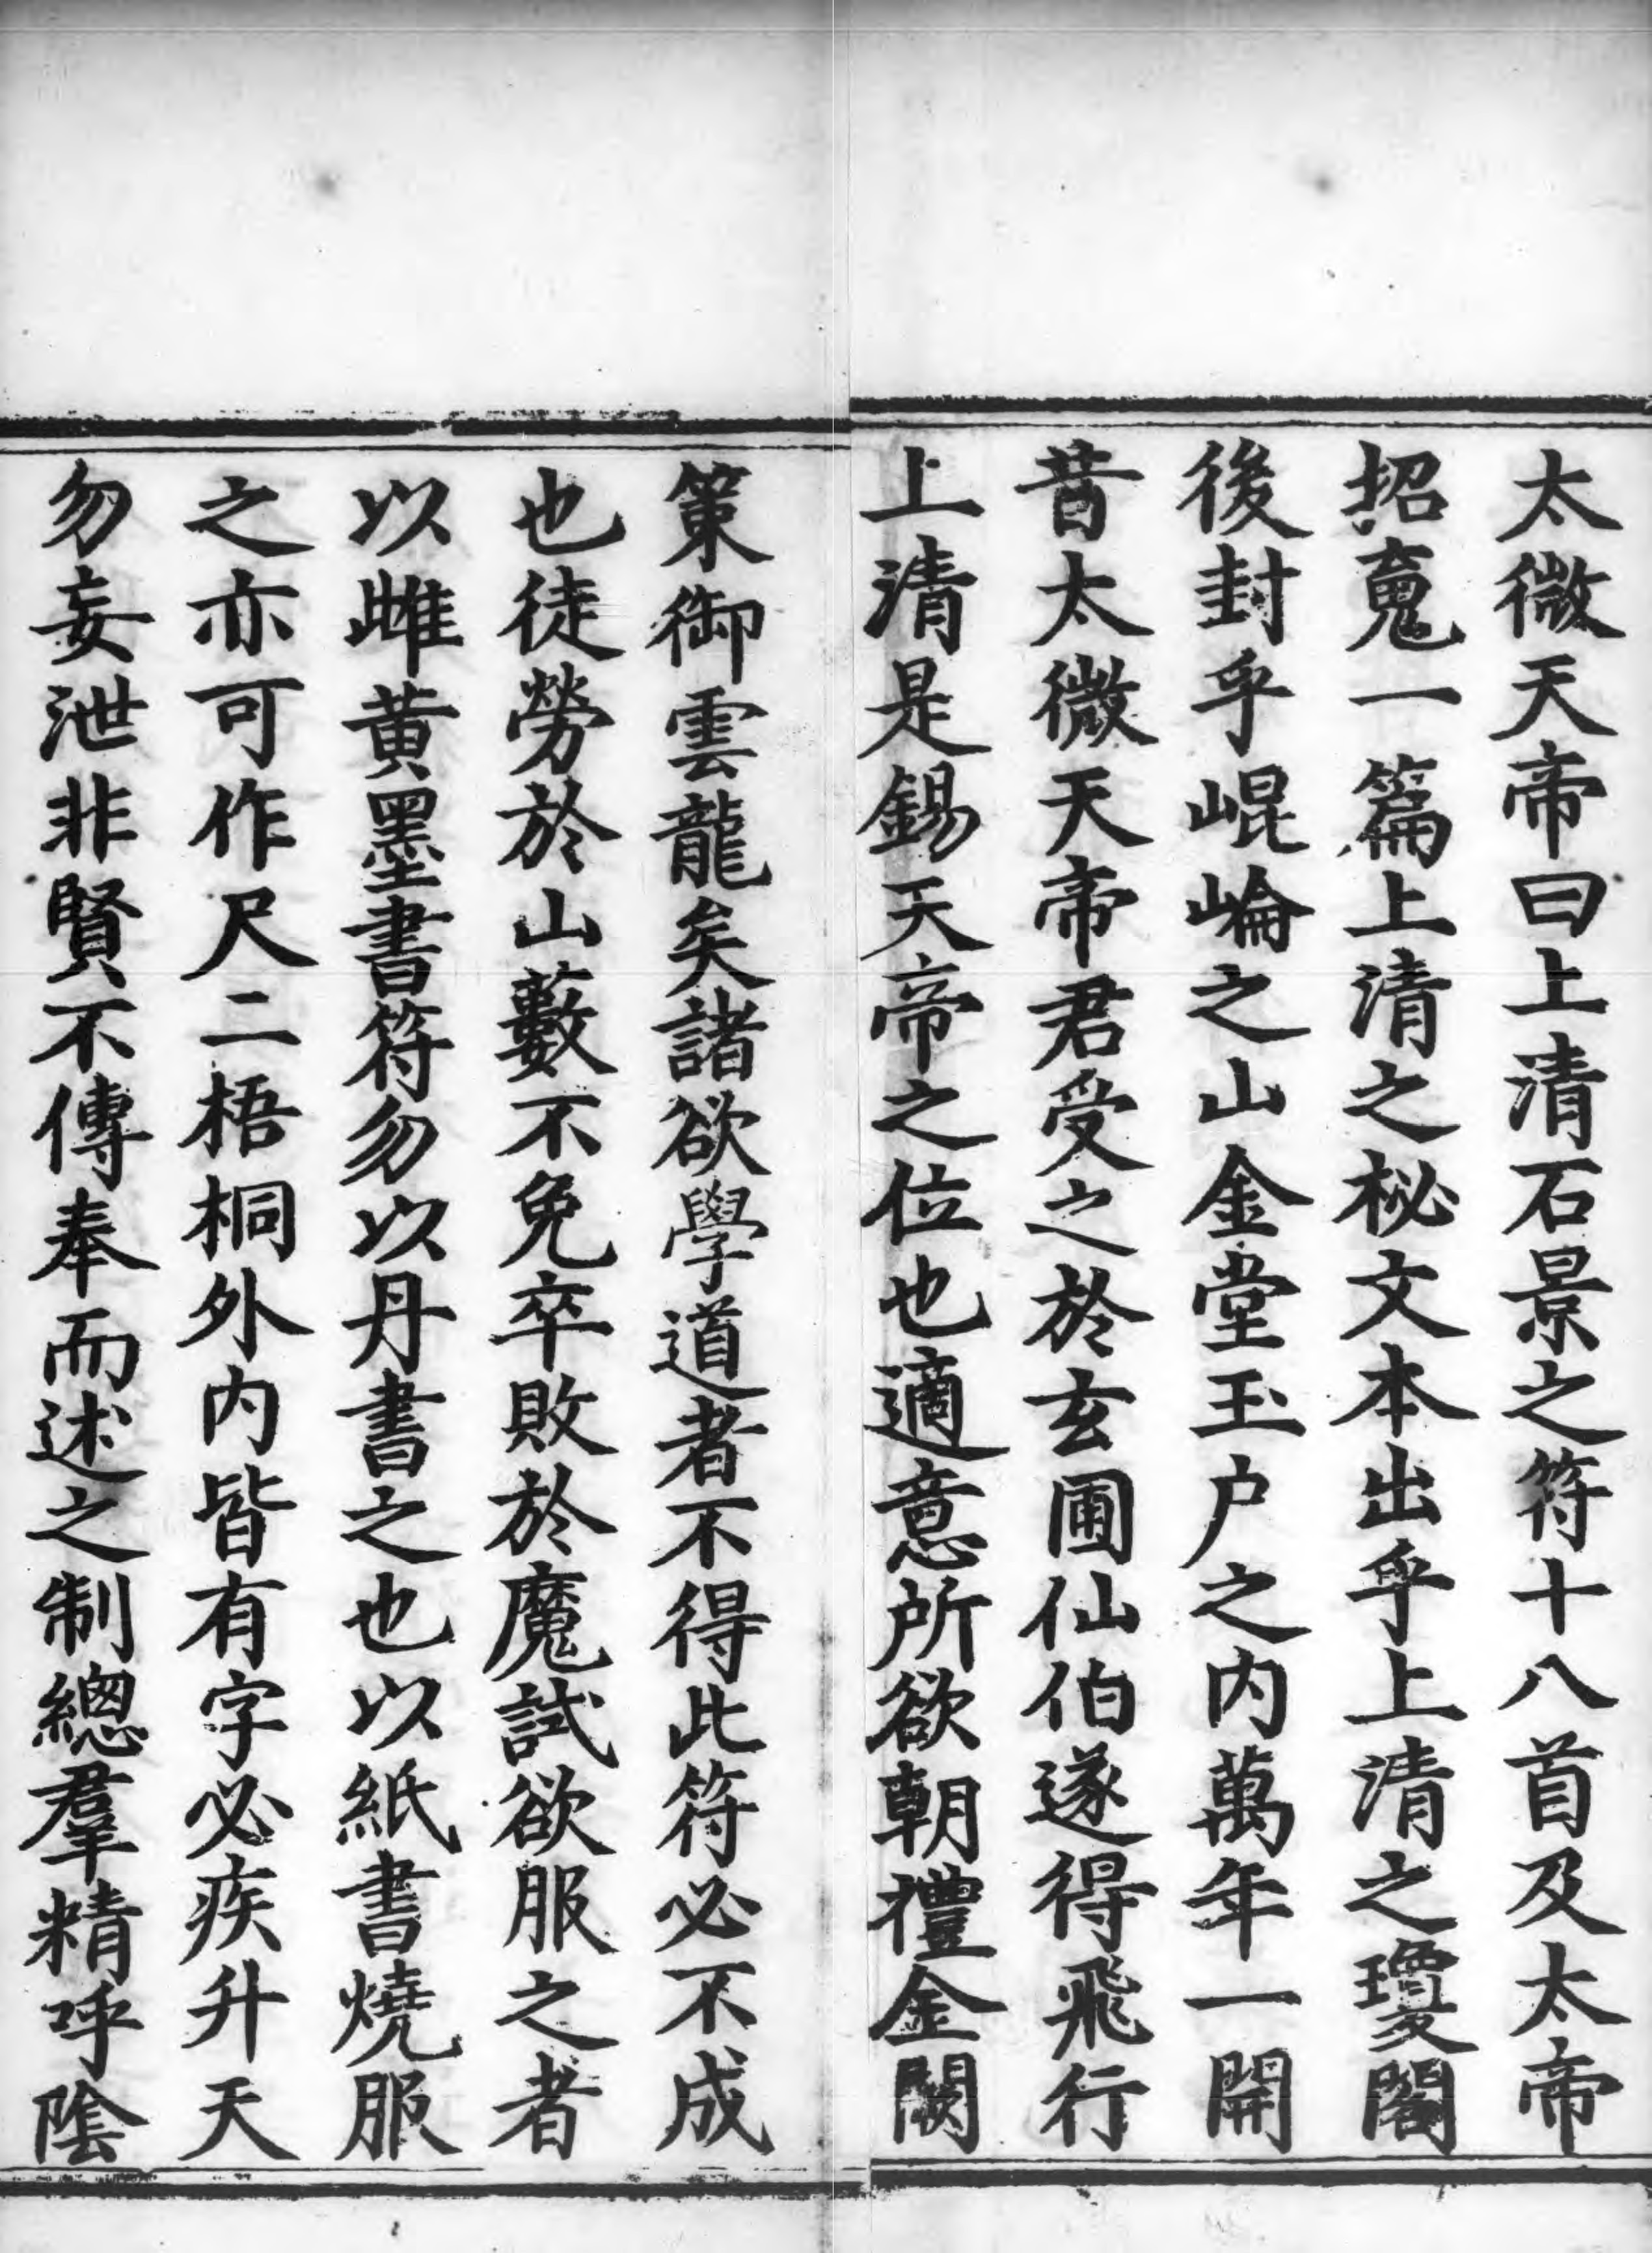 太微天帝曰上清石景之符十八首及太帝
招䰟一篇上清之秘文本出乎上清之瓊閣
後封乎崐崘之山金堂玉户之内萬年一開
昔太微天帝君受之於玄圃仙伯遂得飛行
上清是錫天帝之位也適意所欲朝禮金闕
策御雲龍矣諸欲學道者不得此符必不成
也徒勞於山藪不免卒敗於魔試欲服之者
以雌黄墨書符勿以丹書之也以紙書燒服
之亦可作尺二梧桐外内皆有字必疾升天
勿妄泄非賢不傳奉而述之制總羣精呼隂